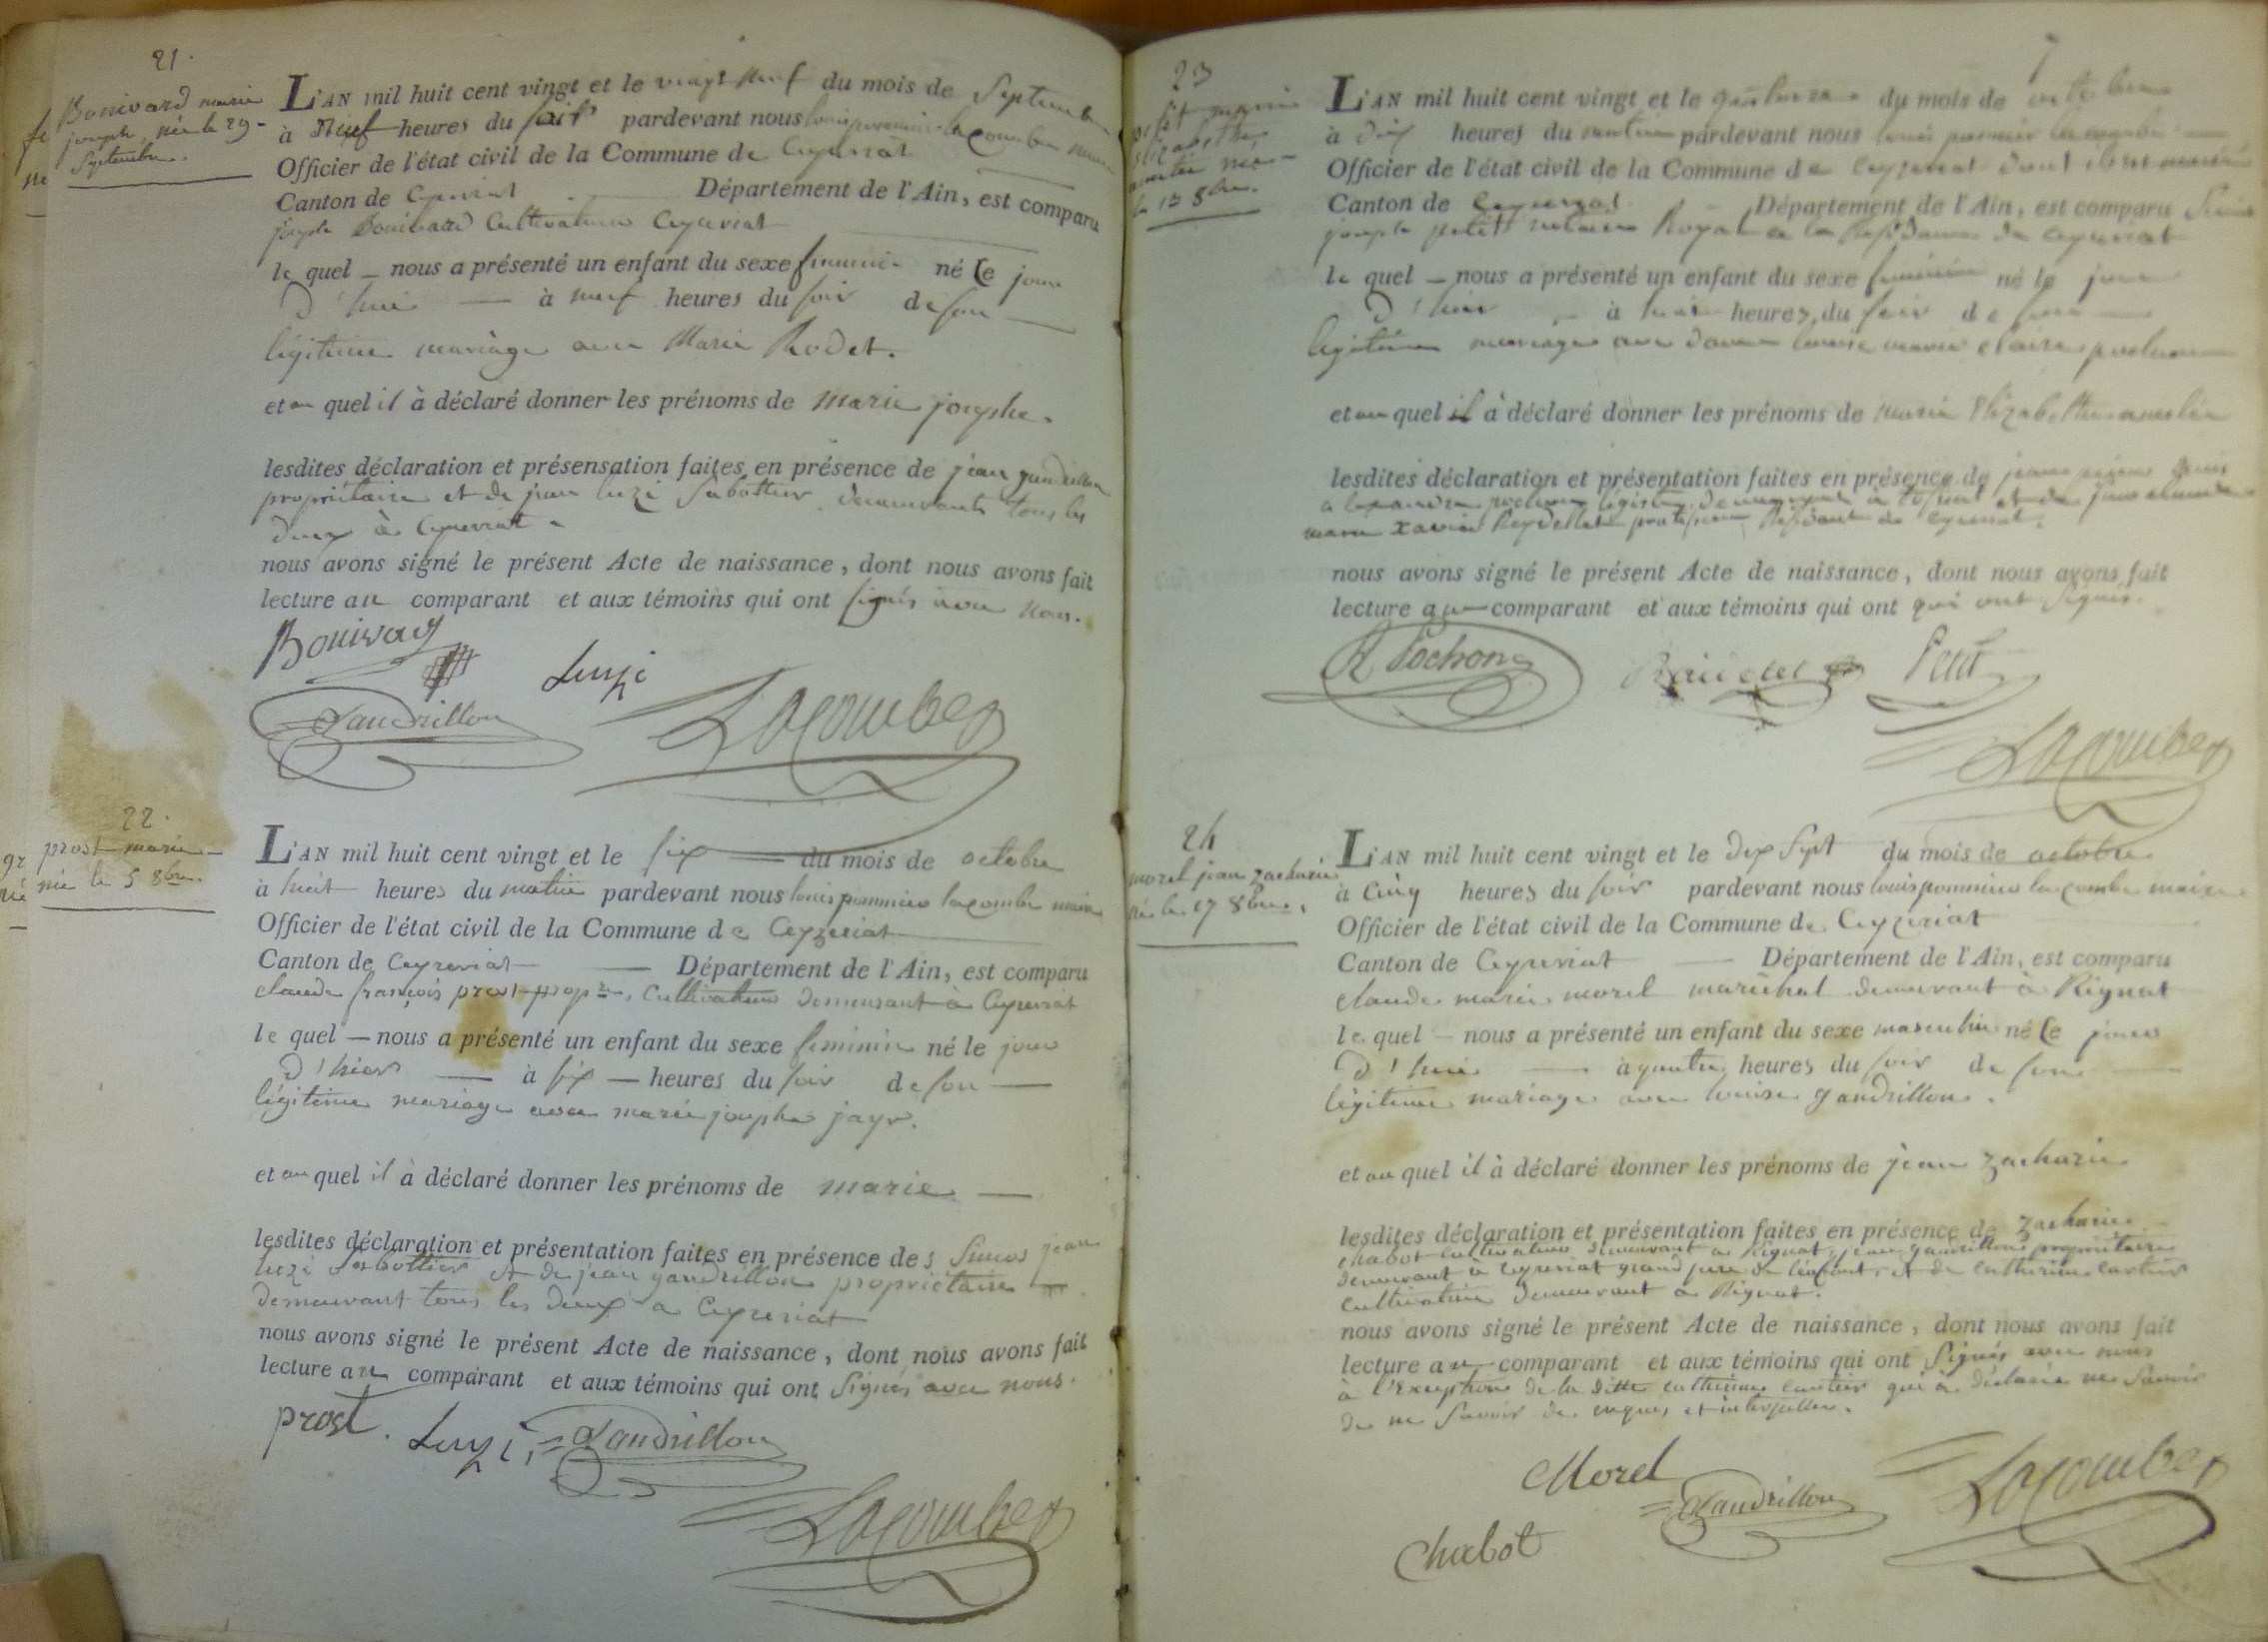 21.
Bonivard marie
joseph née le 29
Septembre.
L'AN mil huit cent vingt et le vingt neuf du mois de Septembre
à Neuf heures du soir pardevant nous louis pommier lacombe maire
Officier de l'état civil de la Commune de Ceyzeriat
Canton de Ceyzeriat Département de l'Ain, est comparu
joseph Bonivard Cultivateur Ceyzeriat
le quel nous a présenté un enfant du sexe feminin né Ce jour
d'hui à neuf heures du soir de son
légitime mariage avec Marie Rodet.
et au quel il à déclaré donner les prénoms de marie josephe.
lesdites déclaration et présensation faites en présence de jean gandrillon
propriétaire et de jean luzi Sabottier demeurants tous les
deux à Ceyzeriat
nous avons signé le présent Acte de naissance, dont nous avons fait
lecture au comparant et aux témoins qui ont signés avec nous.
Bonivard
Luzi
Gandrillon
Lacombe
22.
prost marie
née le 5 8bre.
L'AN mil huit cent vingt et le six du mois de octobre
à huit heures du matin pardevant nous louis pommier lacombe maire
Officier de l'état civil de la Commune de Ceyzeriat
Canton de Ceyzeriat Département de l'Ain, est comparu
claude françois prost propre, Cultivateur demeurant à Ceyzeriat
le quel nous a présenté un enfant du sexe feminin né le jour
d'hier à six heures du soir de son
légitime mariage avec marie josephe jayr.
et au quel il à déclaré donner les prénoms de marie
lesdites déclaration et présentation faites en présence des Sieurs jean
luzi Sabottier et de jean gandrillon propriétaire
demeurant tous les deux a Ceyzeriat
nous avons signé le présent Acte de naissance, dont nous avons fait
lecture au comparant et aux témoins qui ont Signés avec nous.
prost.
Luzi,
Gandrillon
Lacombe
23
petit marie
elizabethe
née
8bre.
L'AN mil huit cent vingt et le du mois de octobre
à dix heures du matin pardevant nous louis pommier lacombe
Officier de l'état civil de la Commune de Ceyzeriat
Canton de Ceyzeriat Département de l'Ain, est comparu Sieur
joseph petit notaire Royal a la Residence de Ceyzeriat
le quel nous a présenté un enfant du sexe feminin né le jour
d'hier à huit heures du soir de son
légitime mariage avec dame louise claire pochon
et au quel il à déclaré donner les prénoms de marie Elizabethe
lesdites déclaration et présentation faites en présence de
alexandre pochon et de
marie xavier Résidant de Ceyzeriat.
nous avons signé le présent Acte de naissance, dont nous avons fait
lecture au comparant et aux témoins qui ont qui ont Signés.
A Pochon
Petit
Lacombe
24
morel jean zacharie
né le 17 8bre.
L'AN mil huit cent vingt et le dix Sept du mois de octobre
à Cinq heures du soir pardevant nous louis pommier lacombe maire
Officier de l'état civil de la Commune de Ceyzeriat
Canton de Ceyzeriat Département de l'Ain, est comparu
claude marie morel maréchal demeurant à Rignat
le quel nous a présenté un enfant du sexe masculin né Ce jour
d'hui à quatre heures du soir de son
légitime mariage avec louise gandrillon.
et au quel il à déclaré donner les prénoms de jean zacharie
lesdites déclaration et présentation faites en présence de zacharie
chabot cultivateur demeurant a Rignat, jean gandrillon propriétaire
demeurant à Ceyzeriat grand pere de l'enfant, et de catherine cartier
cultivatrice demeurant a Rignat.
nous avons signé le présent Acte de naissance, dont nous avons fait
lecture au comparant et aux témoins qui ont Signés avec nous
à l'Exception de la ditte catherine cartier qui a déclarée ne Savoir
de ne Savoir de enquis et interpellée.
Morel
Gandrillon
Lacombe
Chabot